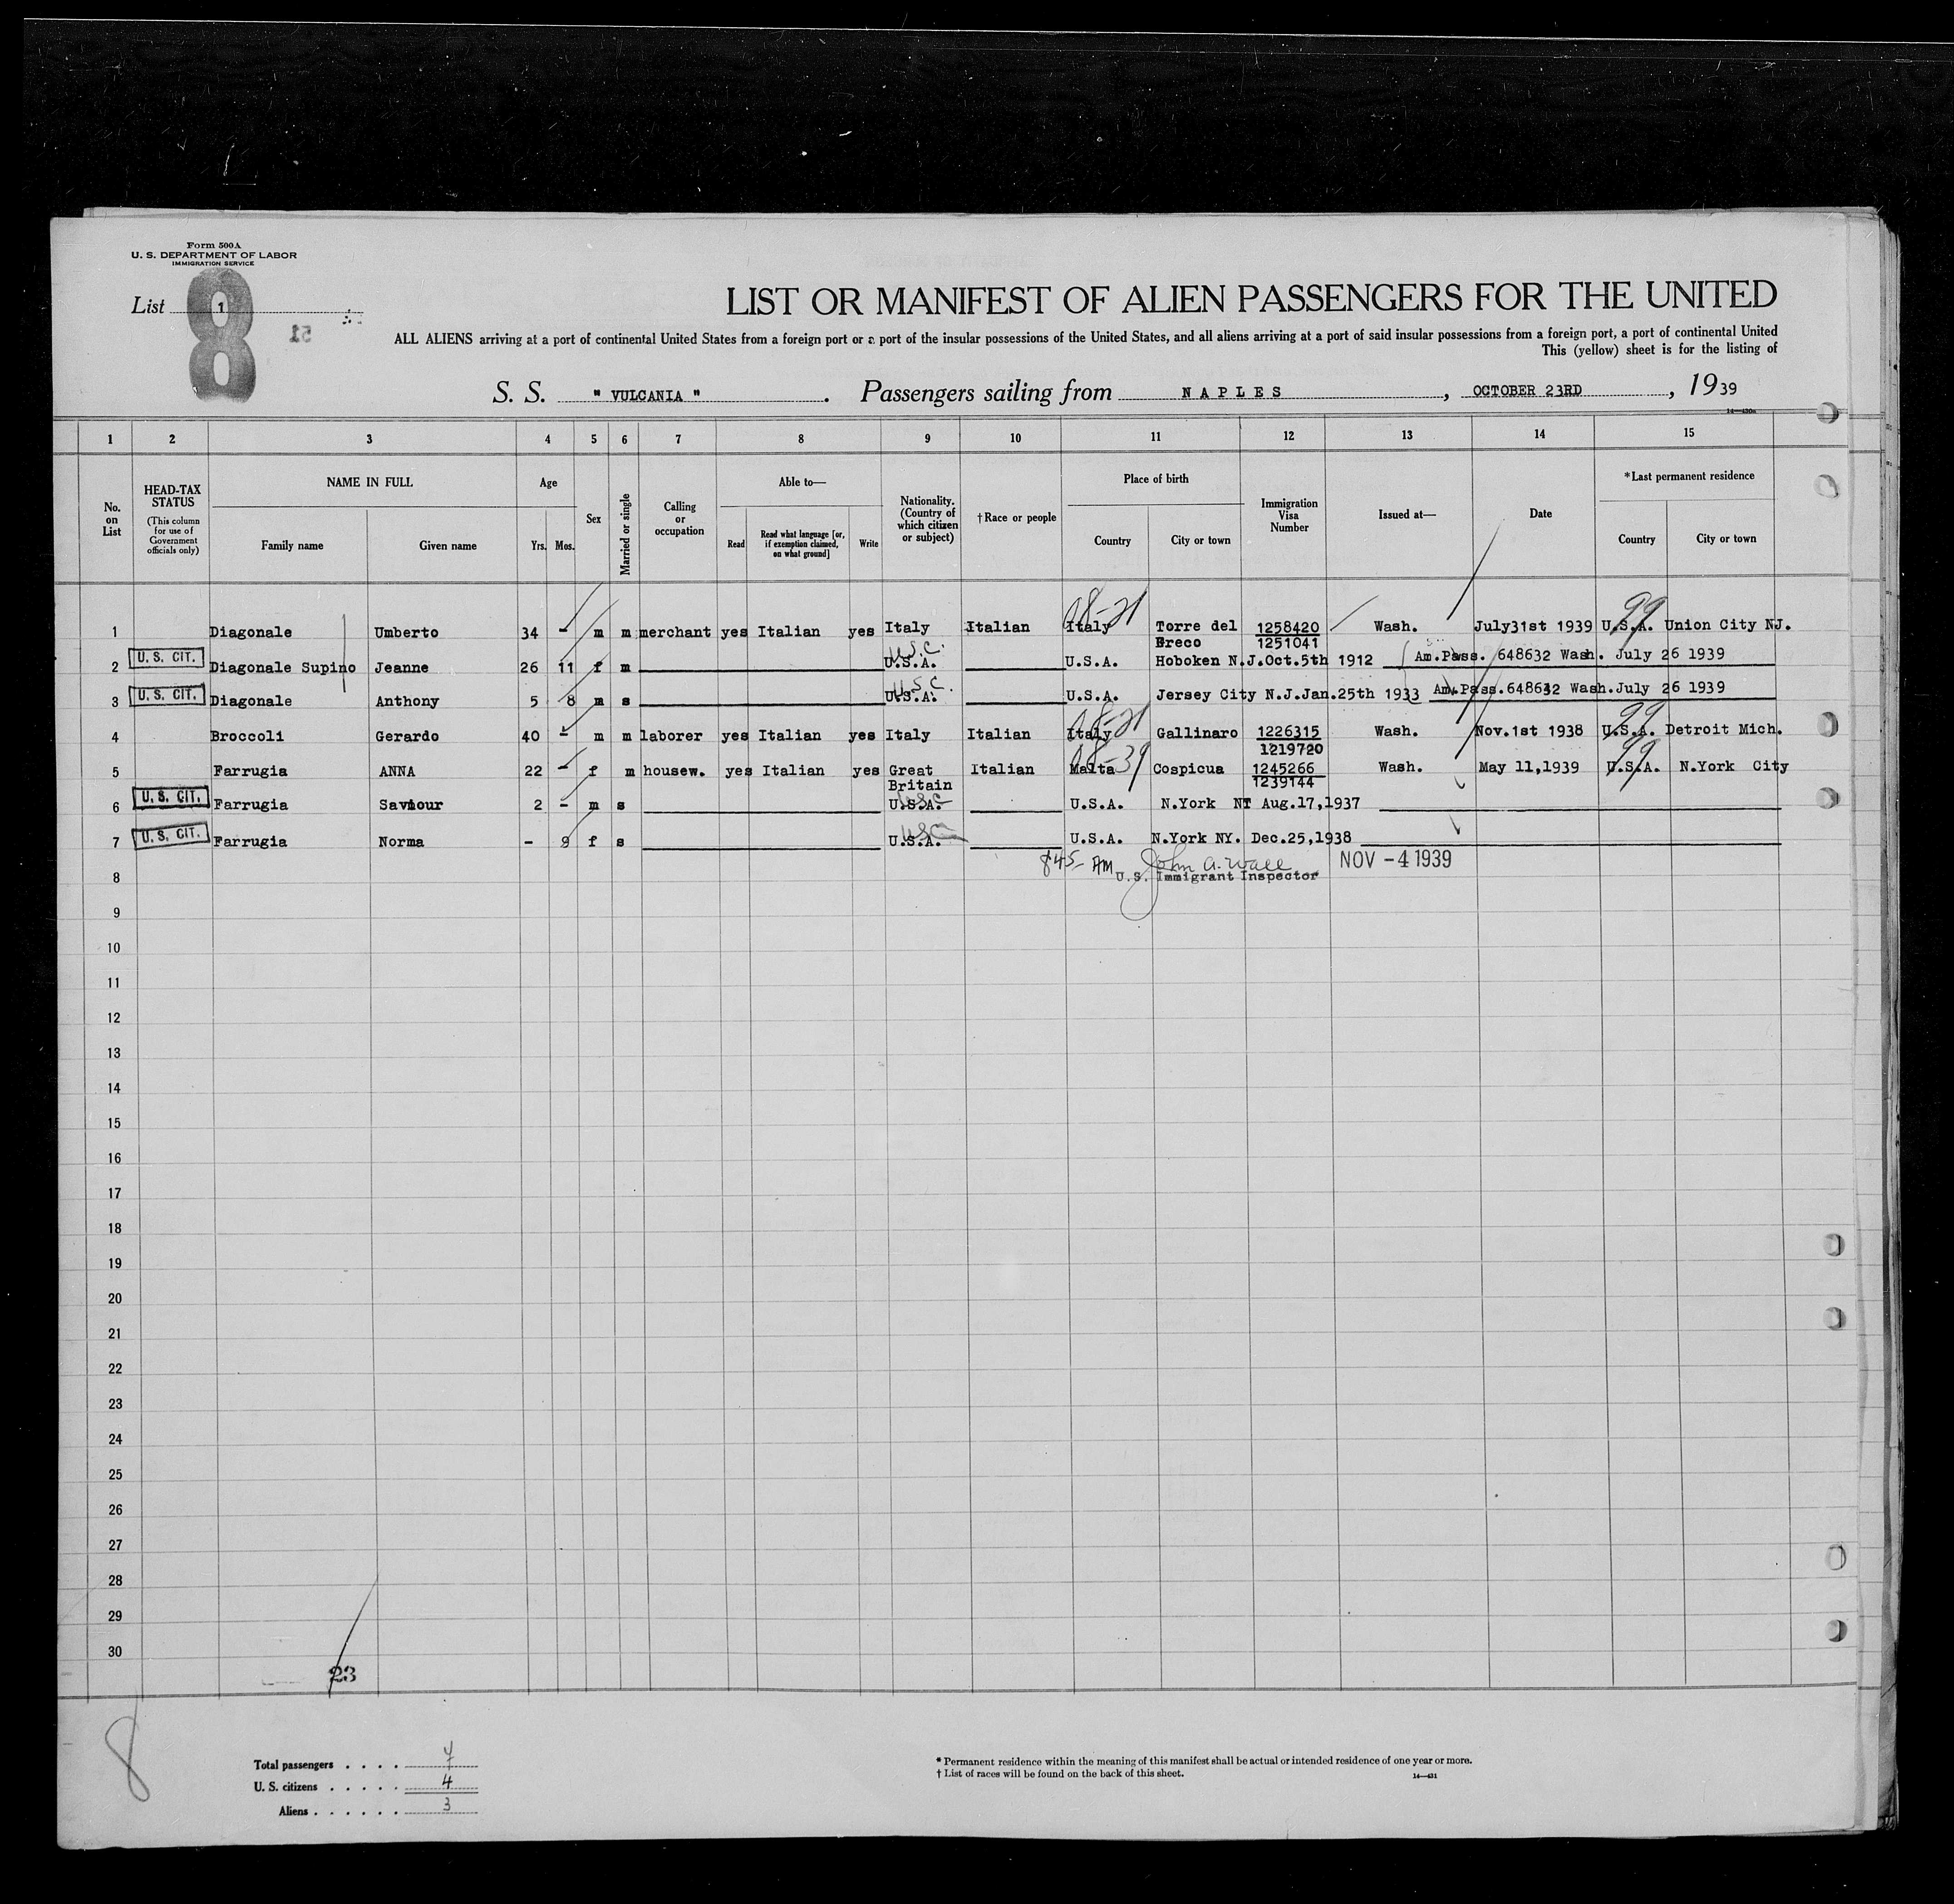 Form 500A
U. S. DEPARTMENT OF LABOR
IMMIGRATION SERVICE
8
List 1
51
LIST OR MANIFEST OF ALIEN PASSENGERS FOR THE UNITED
ALL ALIENS arriving at a port of continental United States from a foreign port or a port of the insular possessions of the United States, and all aliens arriving at a port of said insular possessions from a foreign port, a port of continental United
This (yellow) sheet is for the listing of
S. S. " VULCANIA " . Passengers sailing from NAPLES , OCTOBER 23RD , 1939
14—430a
1 2 3 4 5 6 7 8 9 10 11 12 13 14 15
No. on List
HEAD-TAX STATUS
(This column for use of Government officials only)
NAME IN FULL
Family name Given name
Age
Yrs. Mos.
Sex
Married or single
Calling or occupation
Able to—
Read
Read what language [or, if exemption claimed, on what ground]
Write
Nationality. (Country of which citizen or subject)
†Race or people
Place of birth
Country City or town
Immigration Visa Number
Issued at—
Date
*Last permanent residence
Country City or town
08-21 99
1 Diagonale Umberto 34 - m m merchant yes Italian yes Italy Italian Italy Torre del Greco 1258420 1251041 Wash. July31st 1939 U.S.A. Union City NJ.
U.S.C.
2 U. S. CIT. Diagonale Supino Jeanne 26 11 f m U.S.A. U.S.A. Hoboken N.J.Oct.5th 1912 Am.Pass. 648632 Wash. July 26 1939
U.S.C.
3 U. S. CIT. Diagonale Anthony 5 8 m s U.S.A. U.S.A. Jersey City N.J.Jan.25th 1933 Am.Pass.648632 Wash.July 26 1939
08-21 99
4 Broccoli Gerardo 40 - m m laborer yes Italian yes Italy Italian Italy Gallinaro 1226315 1219720 Wash. Nov.1st 1938 U.S.A. Detroit Mich.
08-39 99
5 Farrugia ANNA 22 - f m housew. yes Italian yes Great Britain Italian Malta Cospicua 1245266 1239144 Wash. May 11,1939 U.S.A. N.York City
6 U. S. CIT. Farrugia Saviour 2 - m s U.S.A. USC U.S.A. N.York NY Aug.17,1937
7 U. S. CIT. Farrugia Norma - 9 f s U.S.A. USC U.S.A. N.York NY. Dec.25,1938
845 AM John A. Wall NOV -4 1939
U.S. Immigrant Inspector
8
9
10
11
12
13
14
15
16
17
18
19
20
21
22
23
24
25
26
27
28
29
30
23
8
Total passengers . . . . 7
U. S. citizens . . . . . 4
Aliens . . . . . . 3
* Permanent residence within the meaning of this manifest shall be actual or intended residence of one year or more.
† List of races will be found on the back of this sheet. 14—431